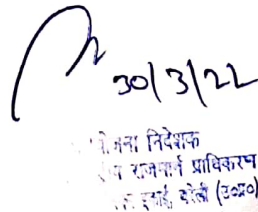 30/3/22
निदेशक
राजमार्ग प्राधिकरण
इकाई, बरेली (उ०प्र०)